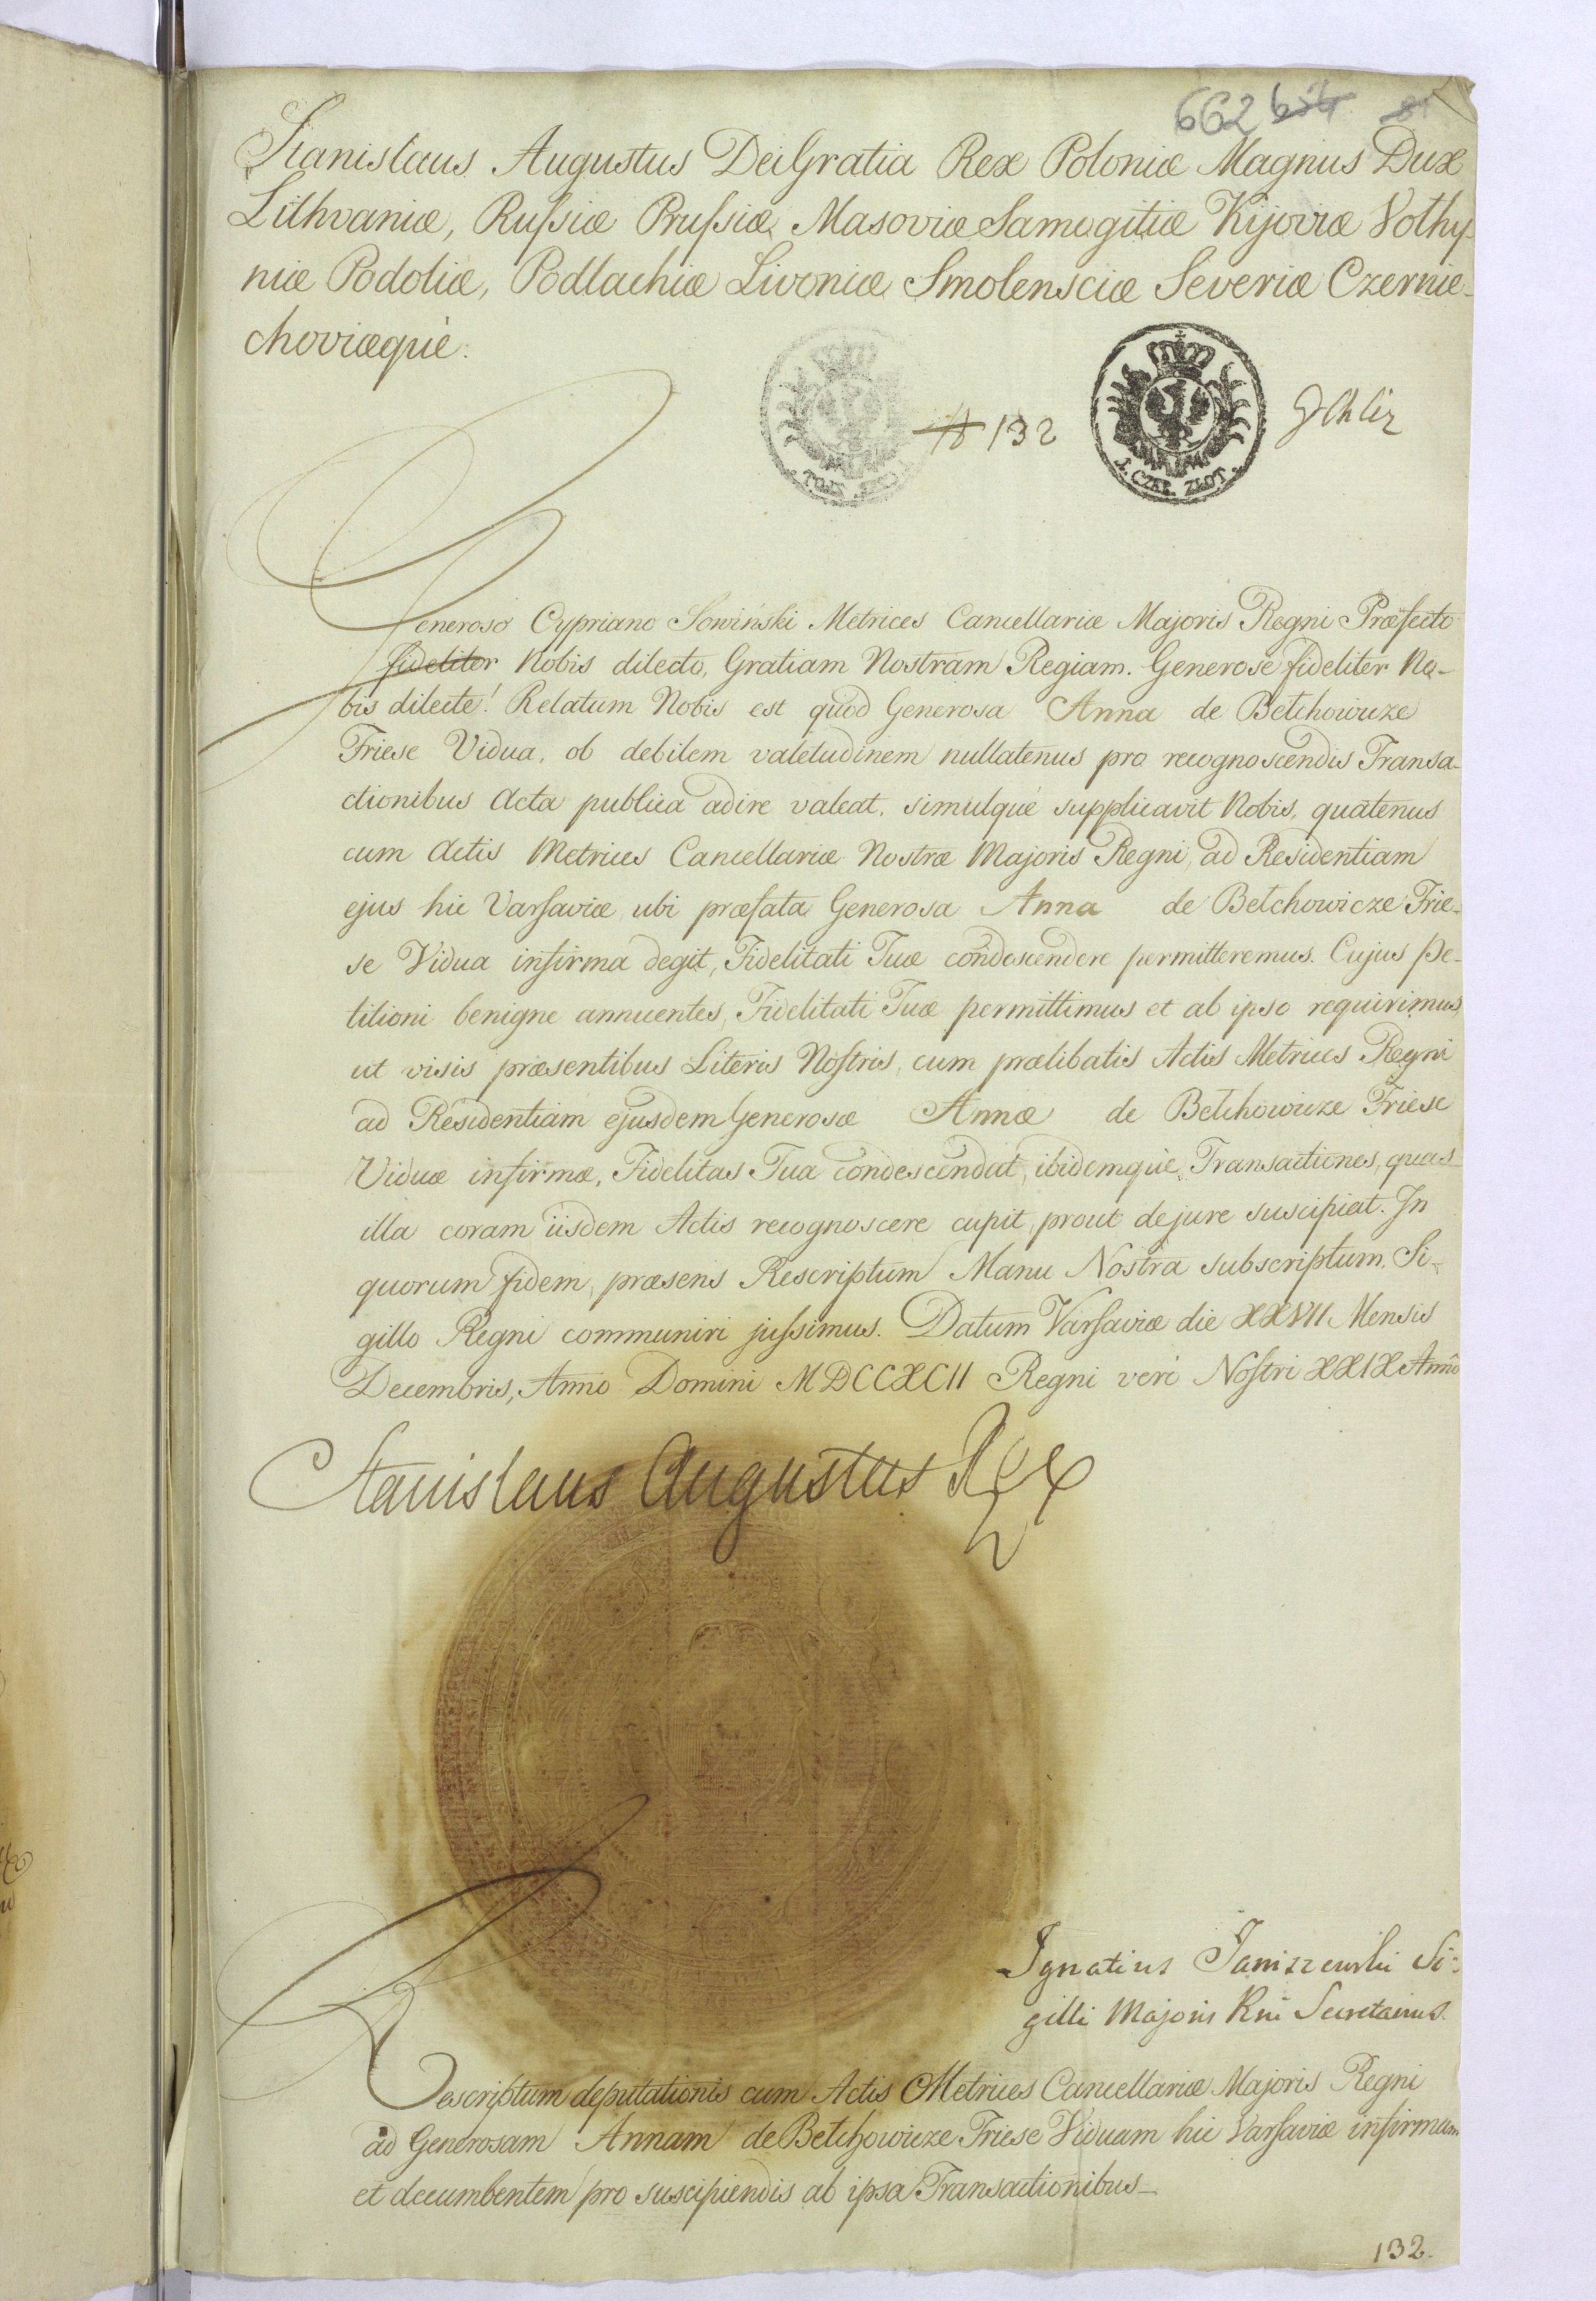 662
Stanislaus Augustus Dei Gratia Rex Poloniæ Magnus Dux
Lithvaniæ, Rußiæ Prußiæ Masoviæ Samogitiæ Kijoviæ Volhy-
niæ Podoliæ, Podlachiæ Livoniæ Smolensciæ Severiæ Czernie-
choviæquè.
132
1. CZER. ZŁOT.
Generoso Cypriano Sowiński Metrices Cancellariæ Majoris Regni Præfecto
fideliter Nobis dilecto, Gratiam Nostram Regiam. Generose fideliter No-
bis dilecte! Relatum Nobis est quod Generosa Anna de Betchowicze
Friese Vidua, ob debilem valetudinem nullatenus pro recognoscendis Transa-
ctionibus Acta publica adire valeat, simulquè supplicavit Nobis, quatenus
cum Actis Metrices Cancellariæ Nostræ Majoris Regni, ad Residentiam
ejus hic Varsaviæ ubi præfata Generosa Anna de Betchowicze Frie-
se Vidua infirma degit, Fidelitati Tuæ condescendere permitteremus. Cujus Pe-
titioni benigne annuentes, Fidelitati Tuæ permittimus et ab ipso requirimus
ut visis præsentibus Literis Nostris, cum prælibatis Actis Metrices Regni
ad Residentiam ejusdem Generosæ Annæ de Betchowicze Friese
Viduæ infirmæ, Fidelitas Tua condescendat, ibidemquè Transactiones, quas
illa coram iisdem Actis recognoscere cupit, prout de jure suscipiat. In
quorum fidem, præsens Rescriptum Manu Nostra subscriptum, Si-
gillo Regni communiri jußimus. Datum Varsaviæ die XXVII Mensis
Decembris, Anno Domini MDCCXCII Regni verò Nostri XXIX Anno
Stanislaus Augustus Rex
Ignatius Janiszewski Si:
gilli Majoris Rni Secretarius.
Rescriptum deputationis cum Actis Metrices Cancellariæ Majoris Regni
ad Generosam Annam de Betchowicze Friese Viduam hic Varsaviæ infirmam
et decumbentem pro suscipiendis ab ipsa Transactionibus
132.